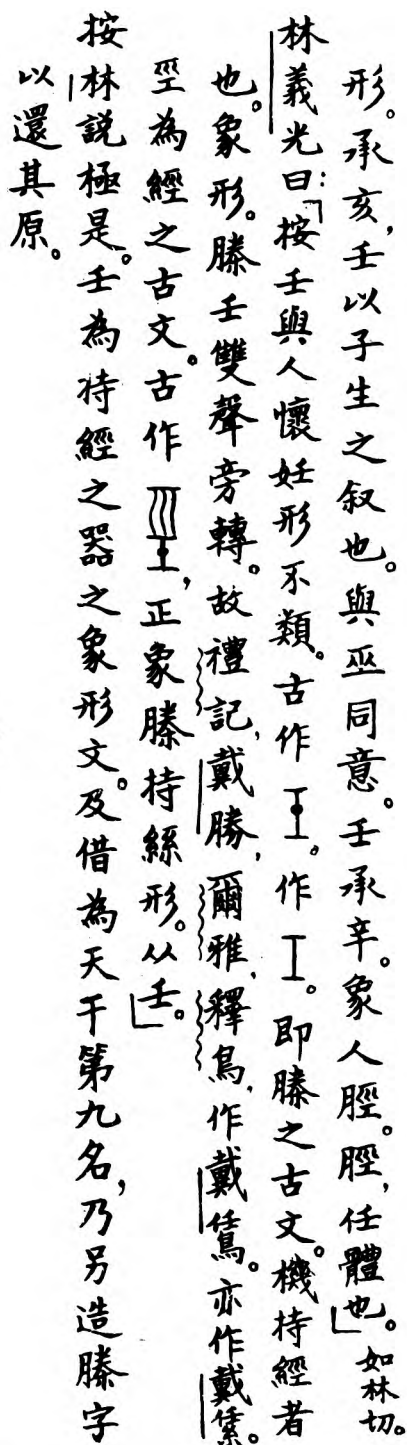 形。承亥,壬以子生之叙也。與巫同意。壬承辛。象人脛。脛,任體也。」如林切。
林義光曰:「按壬與人懷妊形不類。古作。作工。即滕之古文。機持經者
也。象形。滕壬雙聲旁轉。故禮記,戴勝,爾雅,釋鳥,作戴鵀。亦作戴。
巠為經之古文。古作,正象滕持絲形。从壬。」
按林說極是。壬為持經之器之象形文。及借為天干第九名,乃另造滕字
以還其原。